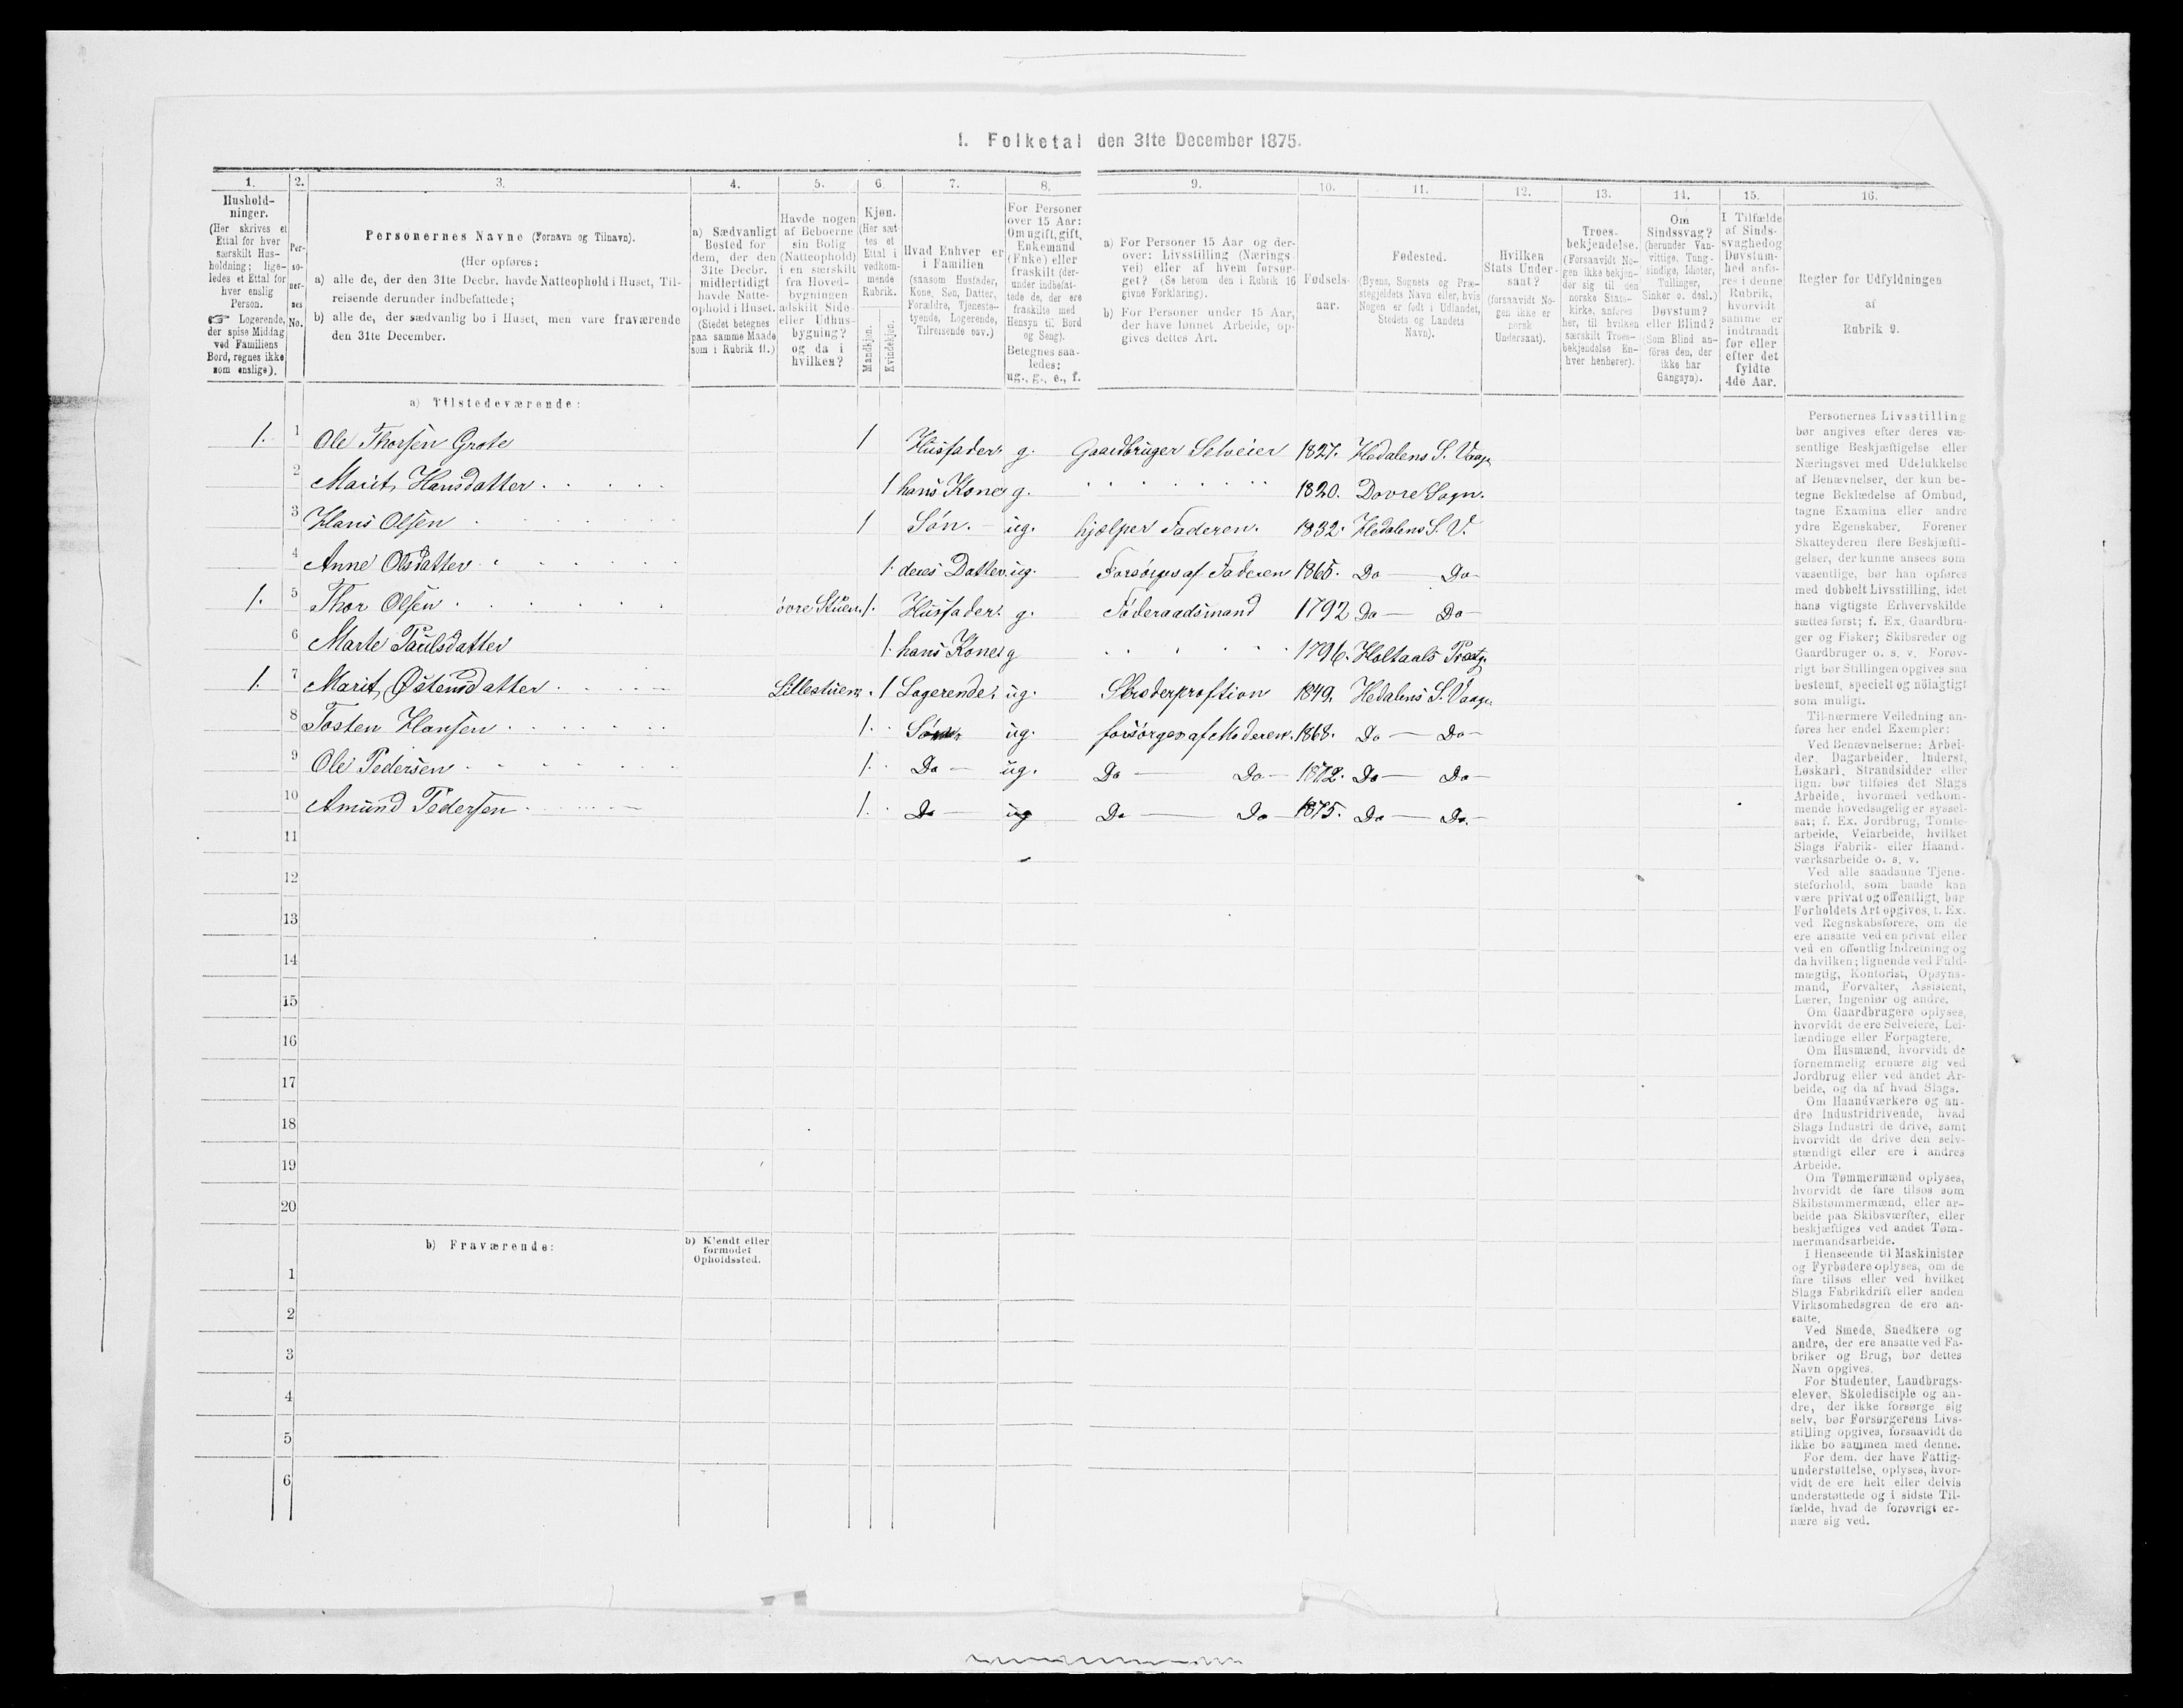 1. Folketal den 31te December 1875.
1. 2. 3. 4. 5. 6. 7. 8. 9. 10. 11. 12. 13. 14. 15. 16.
Hushold-
ninger.
(Her skrives et
Ettal for hver
særskilt Hus-
holdning; lige-
ledes et Ettal for
hver enslig
Person.
☞ Logerende,
der spise Middag
ved Familiens
Bord, regnes ikke
som enslige).
Per-
so-
ner-
nes
No.
Personernes Navne (Fornavn og Tilnavn).
(Her opføres:
a) alle de, der den 31te Decbr. havde Natteophold i Huset, Til-
reisende derunder indbefattede;
b) alle de, der sædvanlig bo i Huset, men vare fraværende
den 31te December.
a) Sædvanligt
Bosted for
dem, der den
31te Decbr.
midlertidigt
havde Natte-
ophold i Huset.
(Stedet betegnes
paa samme Maade
som i Rubrik 11.)
Havde nogen
af Beboerne
sin Bolig
(Natteophold)
i en særskilt
fra Hoved-
bygningen
adskilt Side-
eller Udhus-
bygning?
og da i
hvilken?
Kjøn.
(Her sæt-
tes et
Ettal i
vedkom-
mende
Rubrik.
Mandkjøn.
Kvindekjøn.
Hvad Enhver er
i Familien
(saasom Husfader,
Kone, Søn, Datter,
Forældre, Tjeneste-
tyende, Logerende,
Tilreisende osv.)
For Personer
over 15 Aar:
Om ugift, gift,
Enkemand
(Enke) eller
fraskilt (der-
under indbefat-
tede de, der ere
fraskilte med
Hensyn til Bord
og Seng).
Betegnes saa-
ledes:
ug., g., e., f.
a) For Personer 15 Aar og der-
over: Livsstilling (Nærings-
vei) eller af hvem forsør-
get? (Se herom den i Rubrik 16
givne Forklaring).
b) For Personer under 15 Aar,
der have lønnet Arbeide, op-
gives dettes Art.
Fødsels-
aar.
Fødested.
(Byens, Sognets og Præ-
stegjeldets Navn eller, hvis
Nogen er født i Udlandet,
Stedets og Landets
Navn).
Hvilken
Stats Under-
saat?
(forsaavidt No-
gen ikke er
norsk
Undersaat).
Troes-
bekjendelse.
(Forsaavidt No-
gen ikke bekjen-
der sig til den
norske Stats-
kirke, anføres
her, til hvilken
særskilt Troes-
bekjendelse En-
hver henhører).
Om
Sindssvag?
(herunder Van-
vittige, Tung-
sindige, Idioter,
Tullinger,
Sinker o. desl.)
Døvstum?
eller Blind?
(Som Blind an-
føres den, der
ikke har
Gangsyn).
I Tilfælde
af Sinds-
svaghed og
Døvstum-
hed anfø-
res i denne
Rubrik,
hvorvidt
samme er
indtraadt
før eller
efter det
fyldte
4de Aar.
Regler før Udfyldningen
af
Rubrik 9.
a) Tilstedeværende:
1. 1 Ole Thorsen Grote 1 Husfader. g. Gaardbruger Selveier 1827. Hedalens S. Vaage
2 Marit Hansdatter 1 hans Kone g. 1820. Dovre Sogn.
3 Hans Olsen 1 Søn. ug. hjælper Faderen. 1832. Hedalens S. V.
4 Anne Olsdatter 1. deres Datter. ug. Forsørges af Faderen 1865. Do — Do —
1. 5 Thor Olsen øvre Stuen 1. Husfader. g. Føderaadsmand 1792 Do — Do —
6 Marte Paulsdatter 1. hans Kone g 1796. Holtaals Prætg.
1. 7 Marit Østensdatter Lillestuen 1 Logerende, ug. 1849. Hedalens S. Vaage
8 Tosten Hansen 1. Søn ug. forsørges af Moderen. 1868. Do — Do —
9 Ole Pedersen 1. Do — ug. Do — Do — 1872. Do — Do —
10 Amund Pedersen 1. Do — ug Do — Do — 1875. Do — Do. —
11
12
13
14
15
16
17
18
19
20
b) Fraværende:
b) Kjendt eller
formodet
Opholdssted.
1
2
3
4
5
6
Personernes Livsstilling
bør angives efter deres væ-
sentlige Beskjæftigelse eller
Næringsvei med Udelukkelse
af Benævnelser, der kun be-
tegne Beklædelse af Ombud,
tagne Examina eller andre
ydre Egenskaber. Forener
Skatteyderen flere Beskjæfti-
gelser, der kunne ansees som
væsentlige, bør han opføres
med dobbelt Livsstilling, idet
hans vigtigste Erhvervskilde
sættes først; f. Ex. Gaardbru-
ger og Fisker; Skibsreder og
Gaardbruger o. s. v. Forøv-
rigt bør Stillingen opgives saa
bestemt, specielt og nöiagtigt
som muligt.
Til nærmere Veiledning an-
føres her endel Exempler:
Ved Benævnelserne: Arbei-
der, Dagarbeider, Inderst,
Løskarl, Strandsidder eller
lign. bør tilføies det Slags
Arbeide, hvormed vedkom-
mende hovedsagelig er syssel-
sat; f. Ex. Jordbrug, Tomte-
arbeide, Veiarbeide, hvilket
Slags Fabrik- eller Haand-
værksarbeide o. s. v.
Ved alle saadanne Tjene-
steforhold, som baade kan
være privat og offentligt, bør
Forholdets Art opgives, t. Ex.
ved Regnskabsførere, om de
ere ansatte ved en privat eller
ved en offentlig Indretning og
da hvilken; lignende ved Fuld-
mægtig, Kontorist, Opsyns-
mand, Forvalter, Assistent,
Lærer, Ingeniør og andre.
Om Gaardbrugere oplyses,
hvorvidt de ere Selveiere, Lei-
lændinge eller Forpagtere.
Om Husmænd, hvorvidt de
fornemmelig ernære sig ved
Jordbrug eller ved andet Ar-
beide, og da af hvad Slags.
Om Haandværkere og an-
dre Industridrivende, hvad
Slags Industri de drive, samt
hvorvidt de drive den selv-
stændigt eller ere i andres
Arbeide.
Om Tømmermænd oplyses,
hvorvidt de fare tilsøs som
Skibstømmermænd, eller ar-
beide paa Skibsværfter, eller
beskjæftiges ved andet Tøm-
mermandsarbeide.
I Henseende til Maskinister
og Fyrbødere oplyses, om de
fare tilsøs eller ved hvilket
Slags Fabrikdrift eller anden
Virksomhedsgren de ere an-
satte.
Ved Smede, Snedkere og
andre, der ere ansatte ved Fa-
briker og Brug, bør dettes
Navn opgives.
For Studenter, Landbrugs-
elever, Skoledisciple og an-
dre, der ikke forsørge sig
selv, bør Forsørgerens Livs-
stilling opgives, forsaavidt de
ikke bo sammen med denne.
For dem, der have Fattig-
understøttelse, oplyses, hvor-
vidt de ere helt eller delvis
understøttede og i sidste Til-
fælde, hvad de forøvrigt er-
nære sig ved.